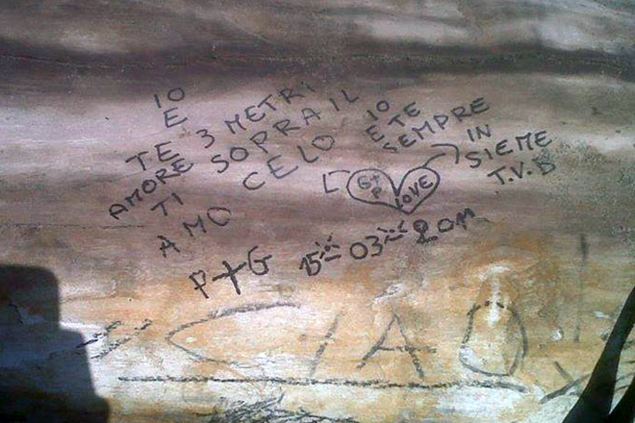 IO
E
TE 3 METRI
AMORE SOPRA IL
TI CELO
AMO
IO
E TE
SEMPRE
IN
SIEME
T.V.B
G+P LOVE
P+G 15 03
CIAO